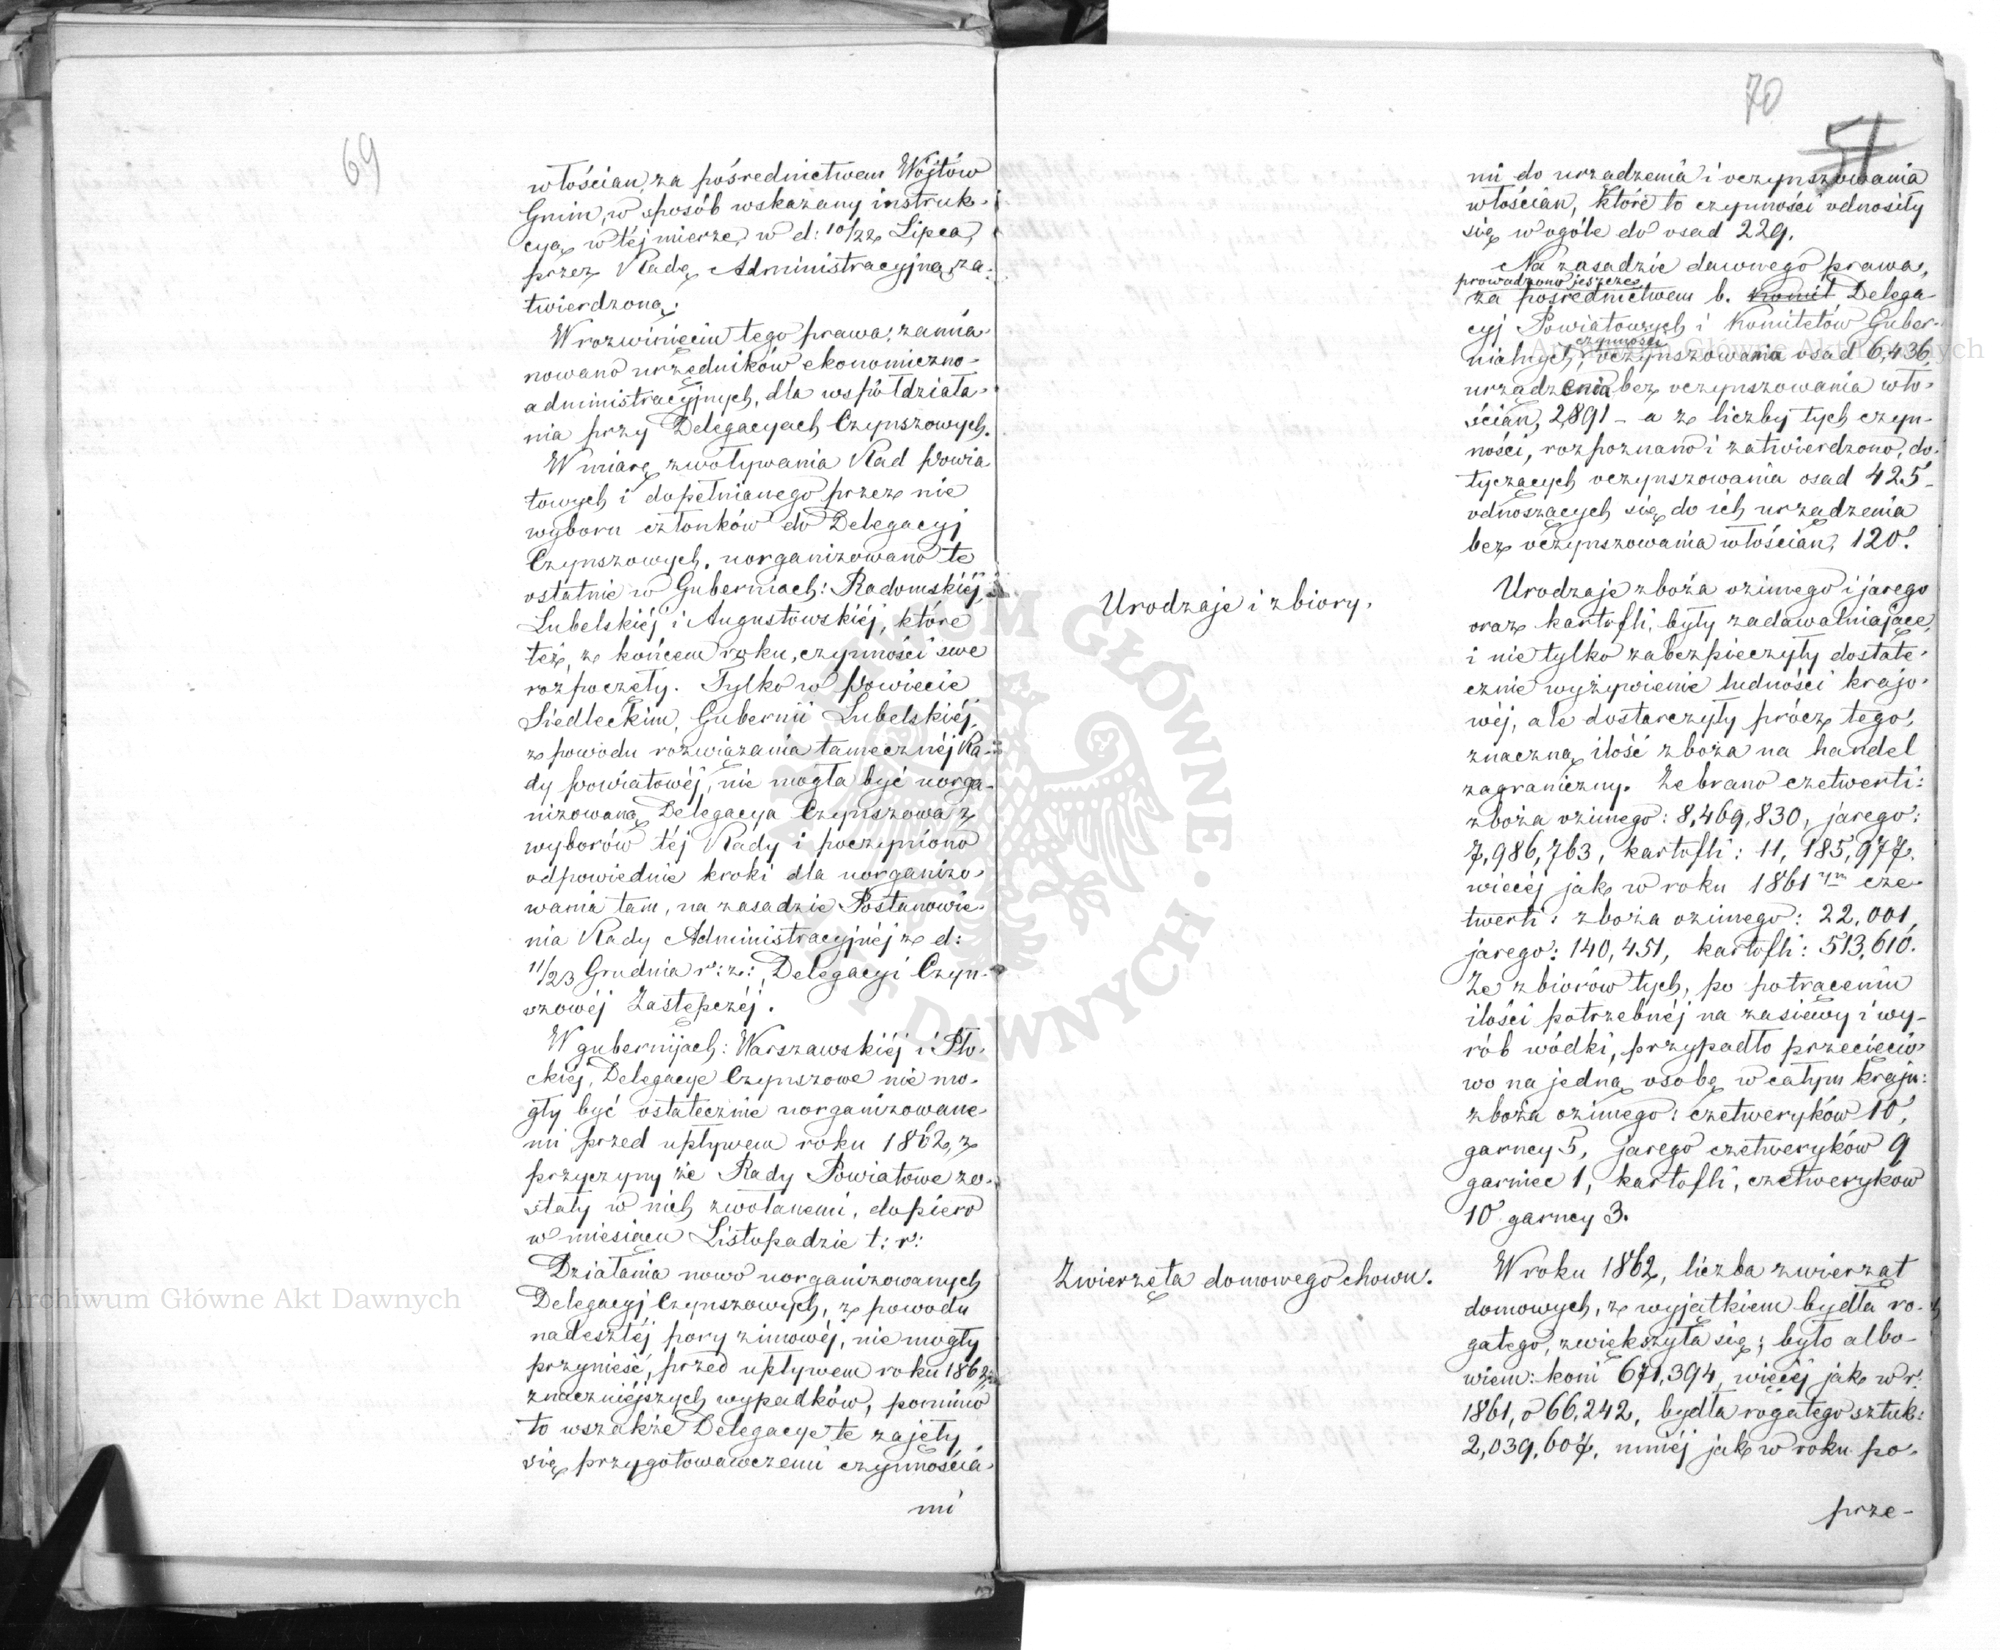 69
włościan, za pośrednictwem Wójtów
Gmin, w sposób wskazany instruk-
cyą w téj mierze, w d: 10/22 Lipca,
przez Radę Administracyjną, za-
twierdzoną.
W rozwinięciu tego prawa, zamia-
nowano urzędników ekonomiczno-
administracyjnych, dla współdziała-
nia przy Delegacyach Czynszowych.
W miarę zwoływania Rad Powia-
towych i dopełnianego przez nie
wyboru członków do Delegacyj
Czynszowych, uorganizowano te
ostatnie w Guberniach: Radomskiéj,
Lubelskiéj i Augustowskiéj, które
też, z końcem roku, czynności swe
rozpoczęły. Tylko w Powiecie
Siedleckim, Gubernii Lubelskiéj,
z powodu rozwiązania tamecznéj Ra-
dy Powiatowéj, nie mogła być uorga-
nizowaną Delegacya Czynszowa z
wyborów téj Rady i poczyniono
odpowiednie kroki dla uorganizo-
wania tam, na zasadzie Postanowie-
nia Rady Administracyjnéj z d:
11/23 Grudnia r: z:, Delegacyi Czyn-
szowéj Zastępczéj.
W gubernijach: Warszawskiéj i Pło-
ckiéj, Delegacye Czynszowe nie mo-
gły być ostatecznie uorganizowane-
mi przed upływem roku 1862, z
przyczyny że Rady Powiatowe zo-
stały w nich zwołanemi, dopiero
w miesiącu Listopadzie t: r:
Działania nowo uorganizowanych
Delegacyj Czynszowych, z powodu
nadeszłéj pory zimowéj, nie mogły
przynieść, przed upływem roku 1862,
znaczniejszych wypadków, pomimo
to wszakże Delegacye te zajęły
się przygotowawczemi czynnościa-
mi
70
51
mi do urządzenia i oczynszowania
włościan, które to czynności odnosiły
się w ogóle do osad 229.
Na zasadzie dawnego prawa,
prowadzono jeszcze
za pośrednictwem b. Komit Delega-
cyj Powiatowych i Komitetów Guber-
czynności
nialnych, oczynszowania osad 6,436,
urządzenia bez oczynszowania wło-
ścian, 2,891 - a z liczby tych czyn-
ności, rozpoznano i zatwierdzono, do-
tyczących oczynszowania osad 425 -
odnoszących się do ich urządzenia
bez oczynszowania włościan, 120.
Urodzaje i zbiory.
Urodzaje zboża ozimego i jarego
oraz kartofli, były zadawalniające,
i nie tylko zabezpieczyły dostate-
cznie wyżywienie ludności krajo-
wéj, ale dostarczyły prócz tego,
znaczną ilość zboża na handel
zagraniczny. Zebrano czetwerti:
zboża ozimego: 8,469,830, jarego:
7,986,763, kartofli: 11,185,977,
więcéj jak w roku 1861ym cze-
twerti: zboża ozimego: 22,001,
jarego: 140,451, kartofli: 513,610.
Ze zbiorów tych, po potrąceniu
ilości potrzebnéj na zasiewy i wy-
rób wódki, przypadło przecięcio-
wo na jedną osobę w całym kraju:
zboża ozimego: czetweryków 10,
garncy 5, jarego czetweryków 9
garniec 1, kartofli, czetweryków
10 garncy 3.
Zwierzęta domowego chowu.
W roku 1862, liczba zwierząt
domowych, z wyjątkiem bydła ro-
gatego, zwiększyła się; było albo-
wiem: koni 671,394, więcéj jak w r.
1861, o 66,242, bydła rogatego sztuk:
2,039,607, mniéj jak w roku po-
prze-
Archiwum Główne Akt Dawnych
Archiwum Główne Akt Dawnych
ARCHIWUM GŁÓWNE AKT DAWNYCH